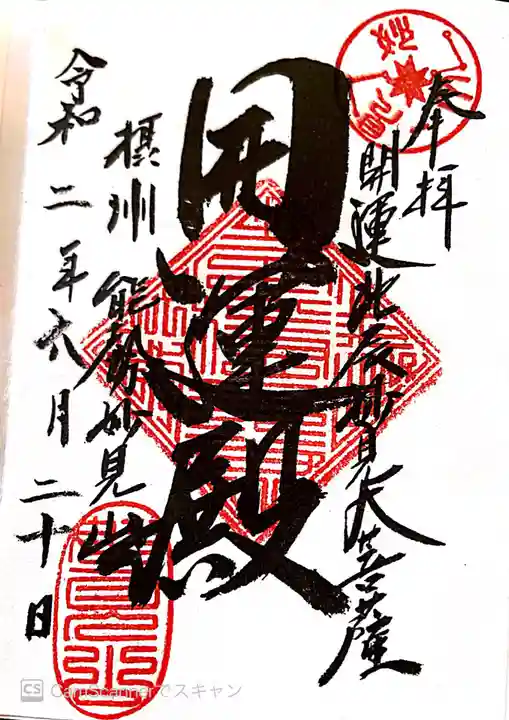 奉拝
開運北辰妙見大菩薩
開運殿
摂州 能勢妙見山
令和二年六月二十日
CS CamScannerでスキャン